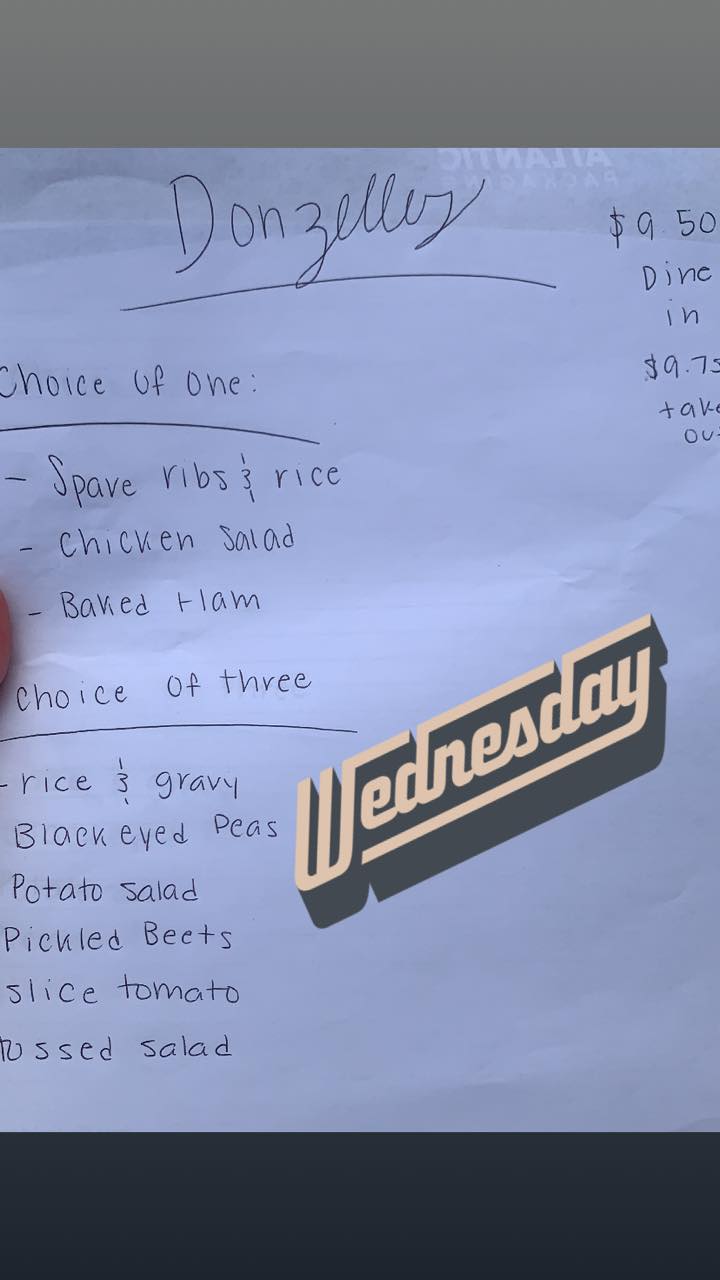 ATLANTIC
PACKAGING
Donzelles
$9.50
Dine
in
$9.75
take
out
Choice of one:
- Spare ribs & rice
- Chicken Salad
- Baked Ham
Choice of three
- rice & gravy
Black eyed Peas
Potato salad
Pickled Beets
slice tomato
tossed salad
Wednesday